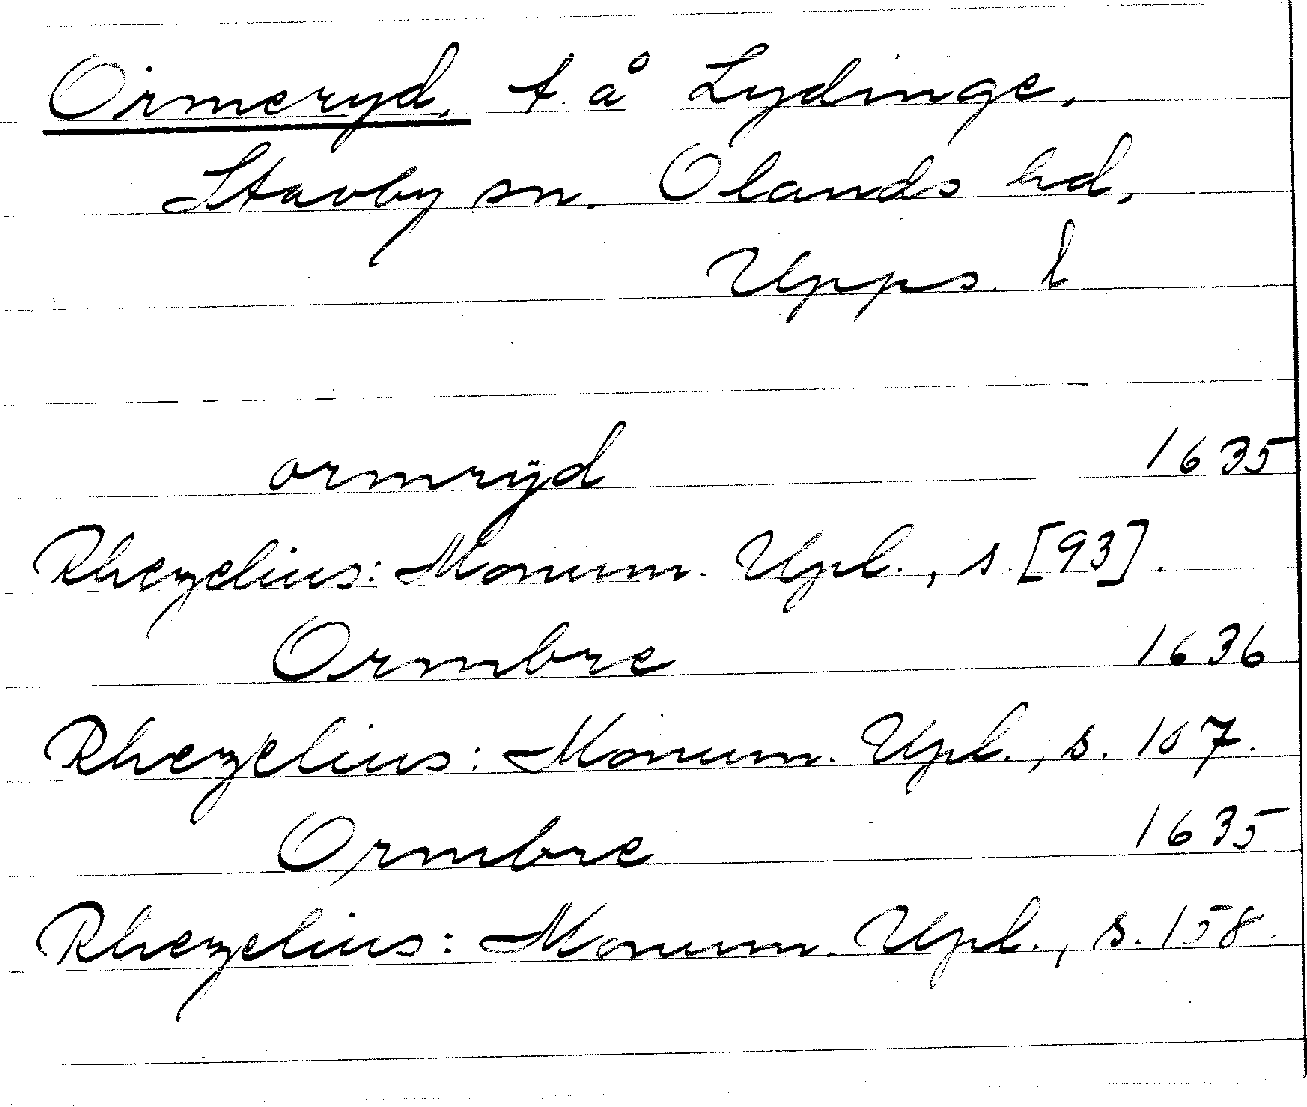 Ormeryd, t. å Lydinge,
Stavby sn. Olands hd,
Upps. l
ormrÿd 1635
Rhezelius: Monum. Upl., s [93].
Ormbre 1636
Rhezelius: Monum. Upl., s. 107.
Ormbre 1635
Rhezelius: Monum. Upl., s. 158.